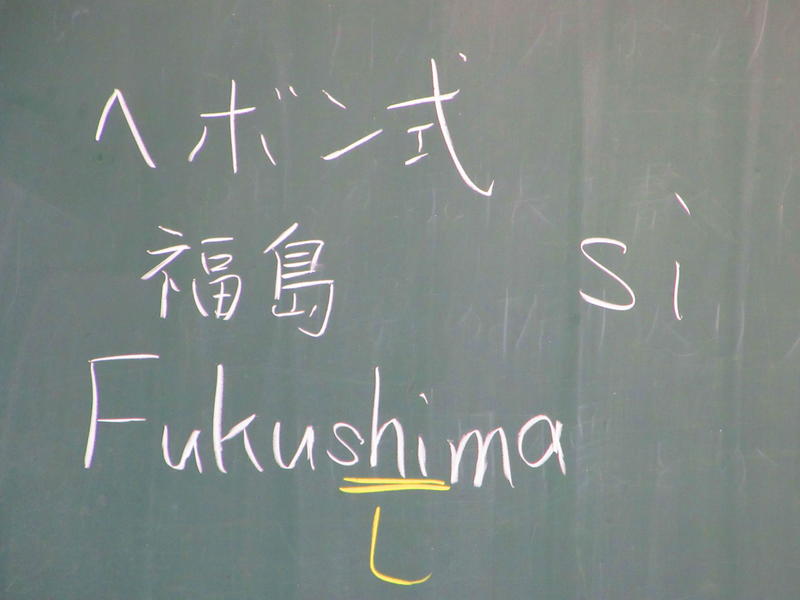 ヘボン式
福島 si
Fukushima
し